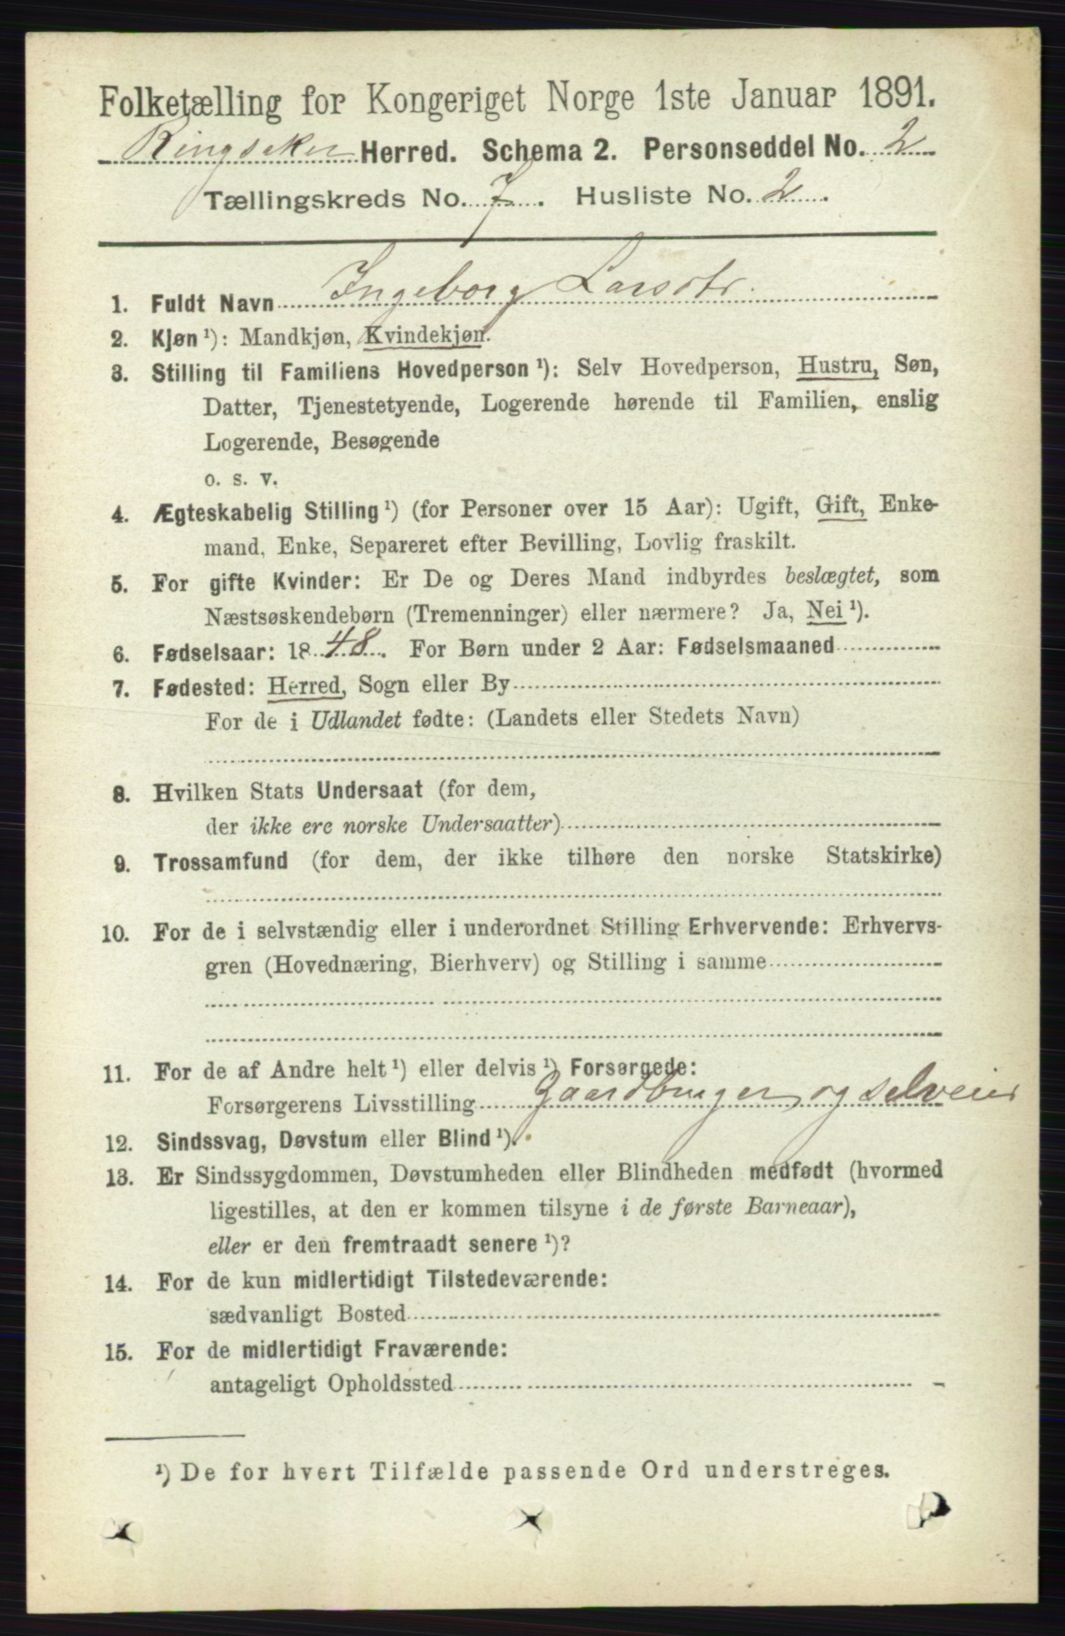 Folketælling for Kongeriget Norge 1ste Januar 1891.
Ringsaker Herred. Schema 2. Personseddel No. 2
Tællingskreds No. 7. Husliste No. 2.
1. Fuldt Navn Ingeborg Larsdtr.
2. Kjøn ¹): Mandkjøn, Kvindekjøn.
3. Stilling til Familiens Hovedperson ¹): Selv Hovedperson, Hustru, Søn,
Datter, Tjenestetyende, Logerende hørende til Familien, enslig
Logerende, Besøgende
o. s. v.
4. Ægteskabelig Stilling ¹) (for Personer over 15 Aar): Ugift, Gift, Enke-
mand, Enke, Separeret efter Bevilling, Lovlig fraskilt.
5. For gifte Kvinder: Er De og Deres Mand indbyrdes beslægtet, som
Næstsøskendebørn (Tremenninger) eller nærmere? Ja, Nei ¹).
6. Fødselsaar: 1848. For Børn under 2 Aar: Fødselsmaaned
7. Fødested: Herred, Sogn eller By
For de i Udlandet fødte: (Landets eller Stedets Navn)
8. Hvilken Stats Undersaat (for dem,
der ikke ere norske Undersaatter)
9. Trossamfund (for dem, der ikke tilhøre den norske Statskirke)
10. For de i selvstændig eller i underordnet Stilling Erhvervende: Erhvervs-
gren (Hovednæring, Bierhverv) og Stilling i samme
11. For de af Andre helt ¹) eller delvis ¹) Forsørgede:
Forsørgerens Livsstilling Gaardbruger og selveier
12. Sindssvag, Døvstum eller Blind ¹).
13. Er Sindssygdommen, Døvstumheden eller Blindheden medfødt (hvormed
ligestilles, at den er kommen tilsyne i de første Barneaar),
eller er den fremtraadt senere ¹)?
14. For de kun midlertidigt Tilstedeværende:
sædvanligt Bosted
15. For de midlertidigt Fraværende:
antageligt Opholdssted
¹) De for hvert Tilfælde passende Ord understreges.